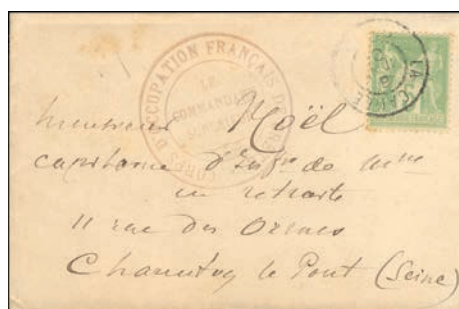 CORPS D'OCCUPATION FRANÇAIS DE
LE
COMMANDANT
LA CANÉE
Monsieur Noël
capitaine d'Infie de Mne
en retraite
11 rue des Ormes
Charenton le Pont (Seine)